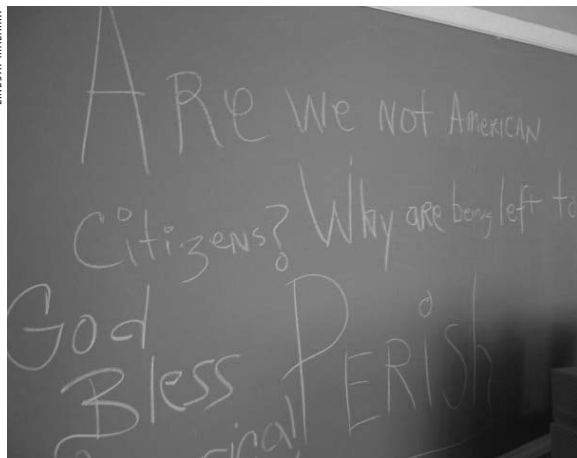 ARe We Not American
Citizens? Why are being left to
God
Bless PERiSh